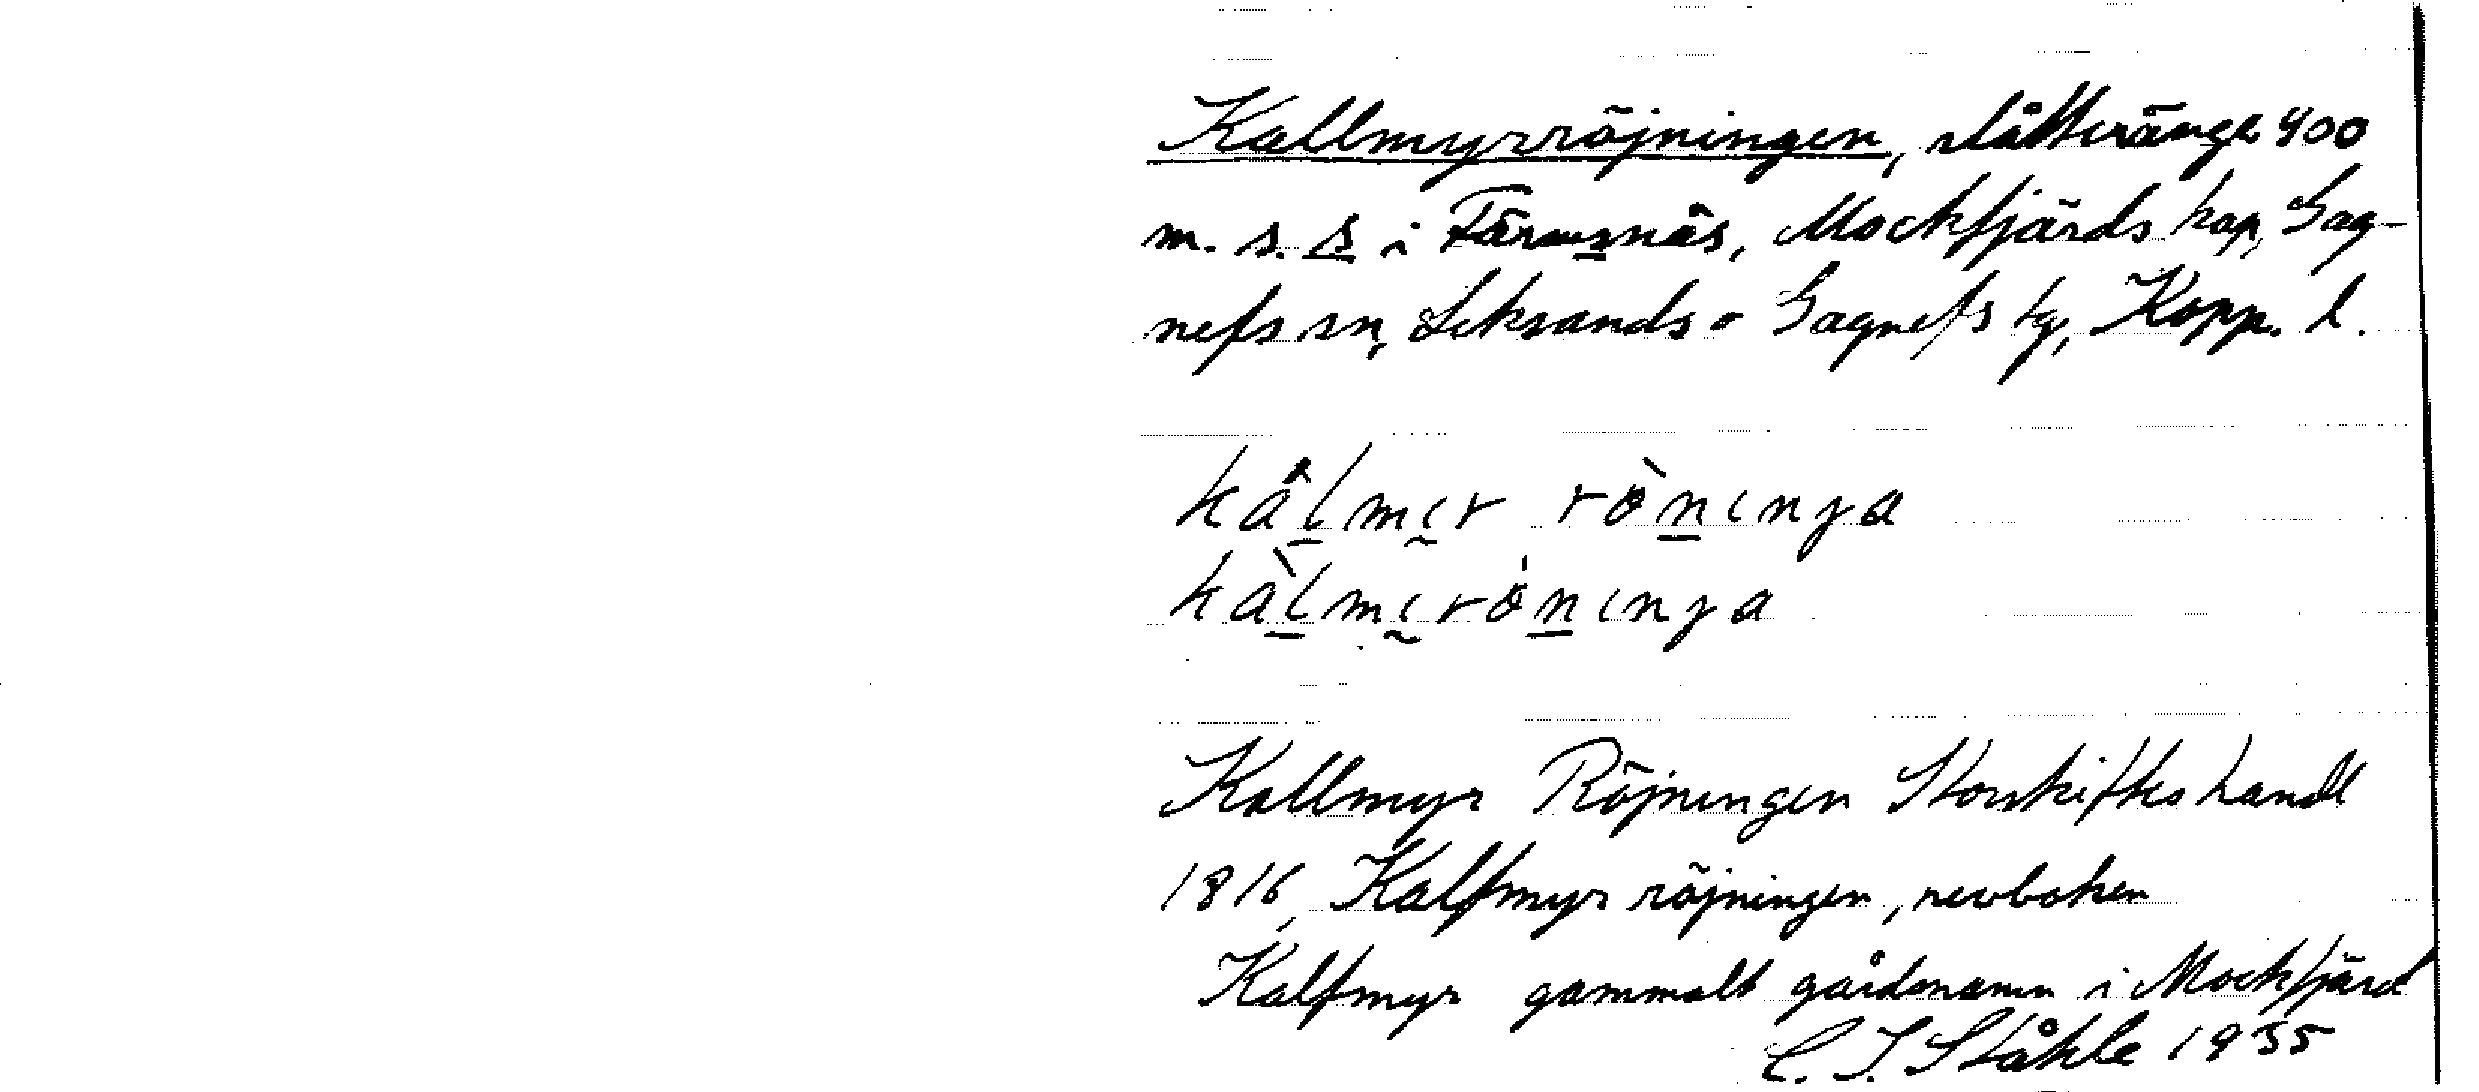 Kallmyrröjningen, slåtteränge 400
m. s. s i Färmsnäs, Mockfjärds kap, Gag-
nefs sn, Leksands o Gagnefs tg, Kopp. l.
kâlmịr rò̈nınga
kàlmịrönınga
Kallmyr Röjningen Storskifteshandl
1816, Kalfmyr röjningen, revboken
Kalfmyr gammalt gårdsnamn i Mockfjärd
C. I. Ståhle 1935